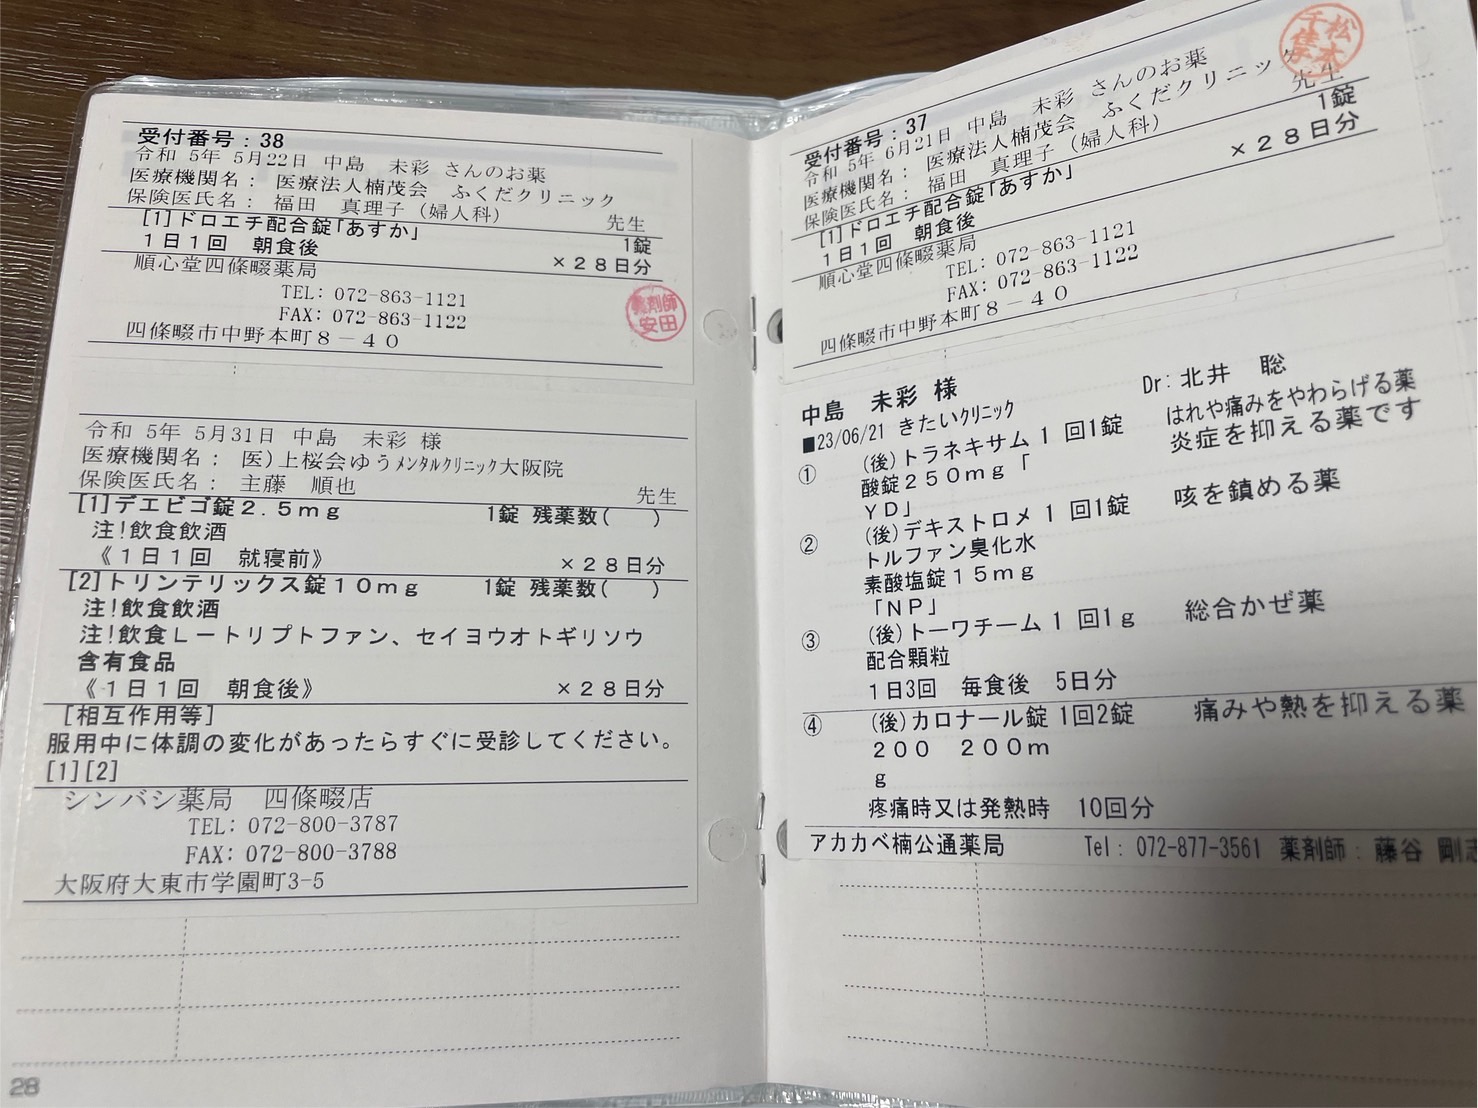 受付番号：38
令和 5年 5月22日 中島 未彩 さんのお薬
医療機関名： 医療法人楠茂会 ふくだクリニック
保険医氏名： 福田 真理子（婦人科） 先生
[1]ドロエチ配合錠「あすか」 1錠
1日1回 朝食後 ×２８日分
順心堂四條畷薬局
TEL: 072-863-1121
FAX: 072-863-1122
四條畷市中野本町８－４０
薬剤師
安田
令和 5年 5月31日 中島 未彩 様
医療機関名： 医)上桜会ゆうﾒﾝﾀﾙｸﾘﾆｯｸ大阪院
保険医氏名： 主藤 順也 先生
[1]デエビゴ錠２.５ｍｇ 1錠 残薬数( )
注!飲食飲酒
《１日１回 就寝前》 ×２８日分
[2]トリンテリックス錠１０ｍｇ 1錠 残薬数( )
注!飲食飲酒
注!飲食Ｌートリプトファン、セイヨウオトギリソウ
含有食品
《１日１回 朝食後》 ×２８日分
[相互作用等]
服用中に体調の変化があったらすぐに受診してください。
[1][2]
シンバシ薬局 四條畷店
TEL: 072-800-3787
FAX: 072-800-3788
大阪府大東市学園町3-5
28
受付番号：37
令和 5年 6月21日 中島 未彩 さんのお薬
医療機関名： 医療法人楠茂会 ふくだクリニック
保険医氏名： 福田 真理子（婦人科） 先生
[1]ドロエチ配合錠「あすか」 1錠
1日1回 朝食後 ×２８日分
順心堂四條畷薬局
TEL: 072-863-1121
FAX: 072-863-1122
四條畷市中野本町８－４０
松本
中島 未彩 様 Dr: 北井 聡
■23/06/21 きたいｸﾘﾆｯｸ
① (後)トラネキサム 1 回1錠 はれや痛みをやわらげる薬
酸錠２５０ｍｇ「 炎症を抑える薬です
ＹＤ」
② (後)デキストロメ 1 回1錠 咳を鎮める薬
トルファン臭化水
素酸塩錠１５ｍｇ
「ＮＰ」
③ (後)トーワチーム 1 回1ｇ 総合かぜ薬
配合顆粒
1日3回 毎食後 5日分
④ (後)カロナール錠 1回2錠 痛みや熱を抑える薬
２００ ２００ｍ
ｇ
疼痛時又は発熱時 10回分
アカカベ楠公通薬局 Tel: 072-877-3561 薬剤師: 藤谷 剛志